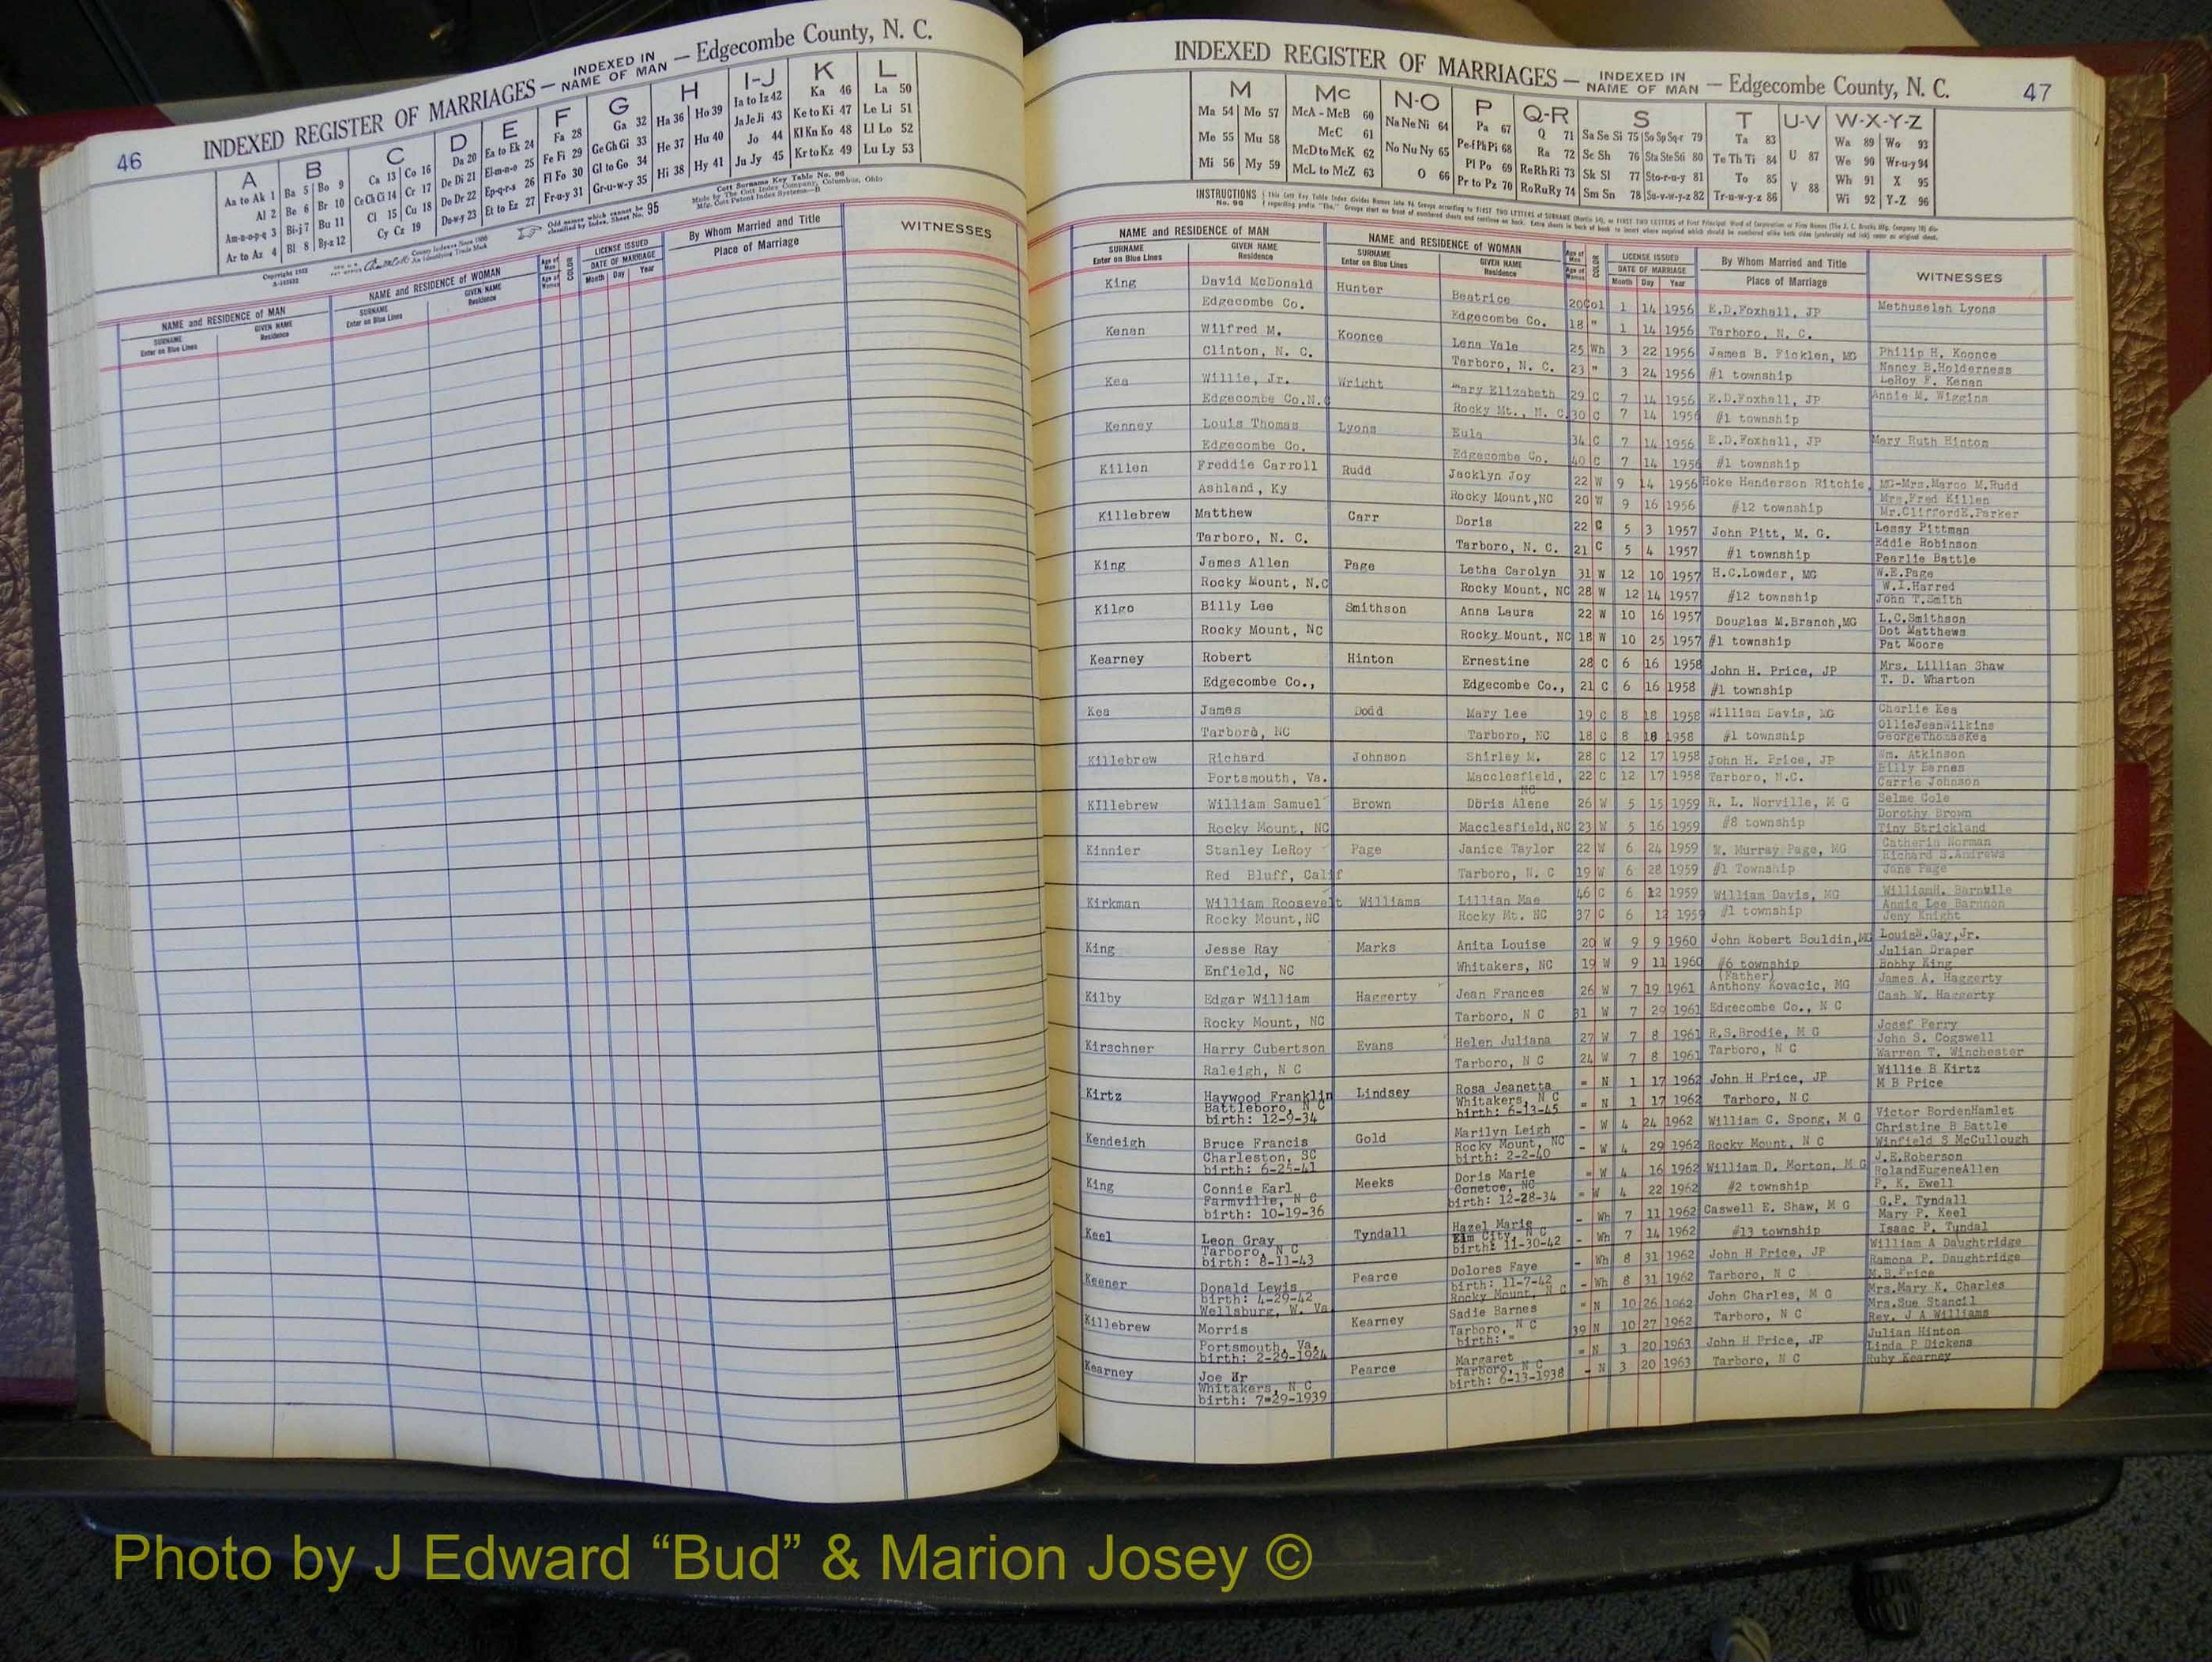 46
INDEXED REGISTER OF MARRIAGES — INDEXED IN NAME OF MAN — Edgecombe County, N. C.
A B C D E F G H I-J K L
Aa to Ak 1 Ba 5 Bo 9 Ca 13 Co 16 Da 20 Ea to Ek 24 Fa 28 Ga 32 Ha 36 Ho 39 Ia to Iz 42 Ka 46 La 50
Al 2 Be 6 Br 10 Ce Ch Ci 14 Cr 17 De Di 21 El-m-n-o 25 Fe Fi 29 Ge Gh Gi 33 He 37 Hu 40 Ja Je Ji 43 Ke to Ki 47 Le Li 51
Am-n-o-p-q 3 Bi-j 7 Bu 11 Cl 15 Cu 18 Do Dr 22 Ep-q-r-s 26 Fl Fo 30 Gl to Go 34 Hi 38 Hy 41 Jo 44 Kl Kn Ko 48 Ll Lo 52
Ar to Az 4 Bl 8 By-z 12 Cy Cz 19 Du-w-y 23 Et to Ez 27 Fr-u-y 31 Gr-u-w-y 35 Ju Jy 45 Kr to Kz 49 Lu Ly 53
Odd names which cannot be classified by Index, Sheet No. 95
Cott Surname Key Table No. 96
Made by The Cott Index Company, Columbus, Ohio
NAME and RESIDENCE OF MAN NAME and RESIDENCE OF WOMAN Age of Man COLOR LICENSE ISSUED By Whom Married and Title WITNESSES
SURNAME GIVEN NAME SURNAME GIVEN NAME Age of Woman DATE OF MARRIAGE Place of Marriage
Enter on Blue Lines Residence Enter on Blue Lines Residence Month Day Year
INDEXED REGISTER OF MARRIAGES — INDEXED IN NAME OF MAN — Edgecombe County, N. C. 47
M Mc N-O P Q-R S T U-V W-X-Y-Z
Ma 54 Mo 57 McA - McB 60 Na Ne Ni 64 Pa 67 Q 71 Sa Se Si 75 So Sp Sq-r 79 Ta 83 Wa 89 Wo 93
Me 55 Mu 58 McC 61 No Nu Ny 65 Pe-f Ph Pi 68 Ra 72 Sc Sh 76 Sta Ste Sti 80 Te Th Ti 84 U 87 We 90 Wr-u-y 94
Mi 56 My 59 McD to McK 62 O 66 Pl Po 69 Re Rh Ri 73 Sk Sl 77 Sto-r-u-y 81 To 85 V 88 Wh 91 X 95
McL to McZ 63 Pr to Pz 70 Ro Ru Ry 74 Sm Sn 78 Su-v-w-y-z 82 Tr-u-w-y-z 86 Wi 92 Y-Z 96
INSTRUCTIONS No. 96
NAME and RESIDENCE OF MAN NAME and RESIDENCE OF WOMAN Age of Man COLOR LICENSE ISSUED By Whom Married and Title WITNESSES
SURNAME GIVEN NAME SURNAME GIVEN NAME Age of Woman DATE OF MARRIAGE Place of Marriage
Enter on Blue Lines Residence Enter on Blue Lines Residence Month Day Year
King David McDonald Hunter Beatrice 20 Col 1 14 1956 E.D.Foxhall, JP Methuselah Lyons
Edgecombe Co. Edgecombe Co. 18 " 1 14 1956 Tarboro, N. C.
Kenan Wilfred M. Koonce Lena Vale 25 Wh 3 22 1956 James B. Ficklen, MG Philip H. Koonce
Clinton, N. C. Tarboro, N. C. 23 " 3 24 1956 #1 township Nancy B.Holderness
LeRoy F. Kenan
Kea Willie, Jr. Wright Mary Elizabeth 29 C 7 14 1956 E.D.Foxhall, JP Annie M. Wiggins
Edgecombe Co.N.C Rocky Mt., N. C. 30 C 7 14 1956 #1 township
Kenney Louis Thomas Lyons Eula 34 C 7 14 1956 E.D.Foxhall, JP Mary Ruth Hinton
Edgecombe Co. Edgecombe Co. 40 C 7 14 1956 #1 township
Killen Freddie Carroll Rudd Jacklyn Joy 22 W 9 14 1956 Hoke Henderson Ritchie, MG-Mrs.Marco M.Rudd
Ashland, Ky Rocky Mount,NC 20 W 9 16 1956 #12 township Mrs.Fred Killen
Mr.CliffordE.Parker
Killebrew Matthew Carr Doris 22 C 5 3 1957 John Pitt, M. G. Lessy Pittman
Tarboro, N. C. Tarboro, N. C. 21 C 5 4 1957 #1 township Eddie Robinson
Pearlie Battle
King James Allen Page Letha Carolyn 31 W 12 10 1957 H.C.Lowder, MG W.E.Page
Rocky Mount, N.C Rocky Mount, NC 28 W 12 14 1957 #12 township W.I.Harred
John T.Smith
Kilgo Billy Lee Smithson Anna Laura 22 W 10 16 1957 Douglas M.Branch,MG L.C.Smithson
Rocky Mount, NC Rocky Mount, NC 18 W 10 25 1957 #1 township Dot Matthews
Pat Moore
Kearney Robert Hinton Ernestine 28 C 6 16 1958 John H. Price, JP Mrs. Lillian Shaw
Edgecombe Co., Edgecombe Co., 21 C 6 16 1958 #1 township T. D. Wharton
Kea James Dodd Mary Lee 19 C 8 18 1958 William Davis, MG Charlie Kea
Tarboro, NC Tarboro, NC 18 C 8 18 1958 #1 township OllieJeanWilkins
GeorgeThomasKea
Killebrew Richard Johnson Shirley M. 28 C 12 17 1958 John H. Price, JP Wm. Atkinson
Portsmouth, Va. Macclesfield, NC 22 C 12 17 1958 Tarboro, N.C. Billy Barnes
Carrie Johnson
KIllebrew William Samuel Brown Doris Alene 26 W 5 15 1959 R. L. Norville, M G Selme Cole
Rocky Mount, NC Macclesfield,NC 23 W 5 16 1959 #8 township Dorothy Brown
Tiny Strickland
Kinnier Stanley LeRoy Page Janice Taylor 22 W 6 24 1959 W. Murray Page, MG Catherin Norman
Red Bluff, Calif Tarboro, N. C 19 W 6 28 1959 #1 Township Richard S.Andrews
Jane Page
Kirkman William Roosevelt Williams Lillian Mae 46 C 6 12 1959 William Davis, MG
Rocky Mount,NC Rocky Mt. NC 37 C 6 12 1959 #1 township Annie Lee Barnnon
Jeny Knight
King Jesse Ray Marks Anita Louise 20 W 9 9 1960 John Robert Bouldin,MG LouisH.Gay,Jr.
Enfield, NC Whitakers, NC 19 W 9 11 1960 #6 township Julian Draper
Bobby King
Kilby Edgar William Haggerty Jean Frances 26 W 7 19 1961 (Father) Anthony Kovacic, MG James A. Haggerty
Rocky Mount, NC Tarboro, N C 31 W 7 29 1961 Edgecombe Co., N C Cash W. Haggerty
Kirschner Harry Cubertson Evans Helen Juliana 27 W 7 8 1961 R.S.Brodie, M G Josef Perry
Raleigh, N C Tarboro, N C 24 W 7 8 1961 Tarboro, N C John S. Cogswell
Warren T. Winchester
Kirtz Haywood Franklin Lindsey Rosa Jeanetta = N 1 17 1962 John H Price, JP Willie B Kirtz
Battleboro, N C Whitakers, N C = N 1 17 1962 Tarboro, N C M B Price
birth: 12-9-34 birth: 6-13-45
Kendeigh Bruce Francis Gold Marilyn Leigh - W 4 24 1962 William C. Spong, M G Victor BordenHamlet
Charleston, SC Rocky Mount, NC - W 4 29 1962 Rocky Mount, N C Christine B Battle
birth: 6-25-41 birth: 2-2-40 Winfield S McCullough
King Connie Earl Meeks Doris Marie = W 4 16 1962 William D. Morton, M G J.E.Roberson
Farmville, N C Conetoe, NC = W 4 22 1962 #2 township RolandEugeneAllen
birth: 10-19-36 birth: 12-28-34 P. K. Ewell
Keel Leon Gray Tyndall Hazel Marie - Wh 7 11 1962 Caswell E. Shaw, M G G.P. Tyndall
Tarboro, N C Elm City, N C - Wh 7 14 1962 #13 township Mary P. Keel
birth: 8-11-43 birth: 11-30-42 Isaac P. Tyndal
Keener Donald Lewis Pearce Dolores Faye - Wh 8 31 1962 John H Price, JP William A Daughtridge
birth: 4-29-42 birth: 11-7-42 - Wh 8 31 1962 Tarboro, N C Ramona P. Daughtridge
Wellsburg, W. Va. Rocky Mount, N C M.B.Price
Killebrew Morris Kearney Sadie Barnes = N 10 26 1962 John Charles, M G Mrs.Mary K. Charles
Portsmouth, Va. Tarboro, N C 39 N 10 27 1962 Tarboro, N C Mrs.Sue Stancil
birth: 2-29-1924 birth: = Rev. J A Williams
Kearney Joe Jr Pearce Margaret = N 3 20 1963 John H Price, JP Julian Hinton
Whitakers, N C Tarboro, N C - N 3 20 1963 Tarboro, N C Linda P Dickens
birth: 7=29-1939 birth: 6-13-1938 Ruby Kearney
Photo by J Edward “Bud” & Marion Josey ©